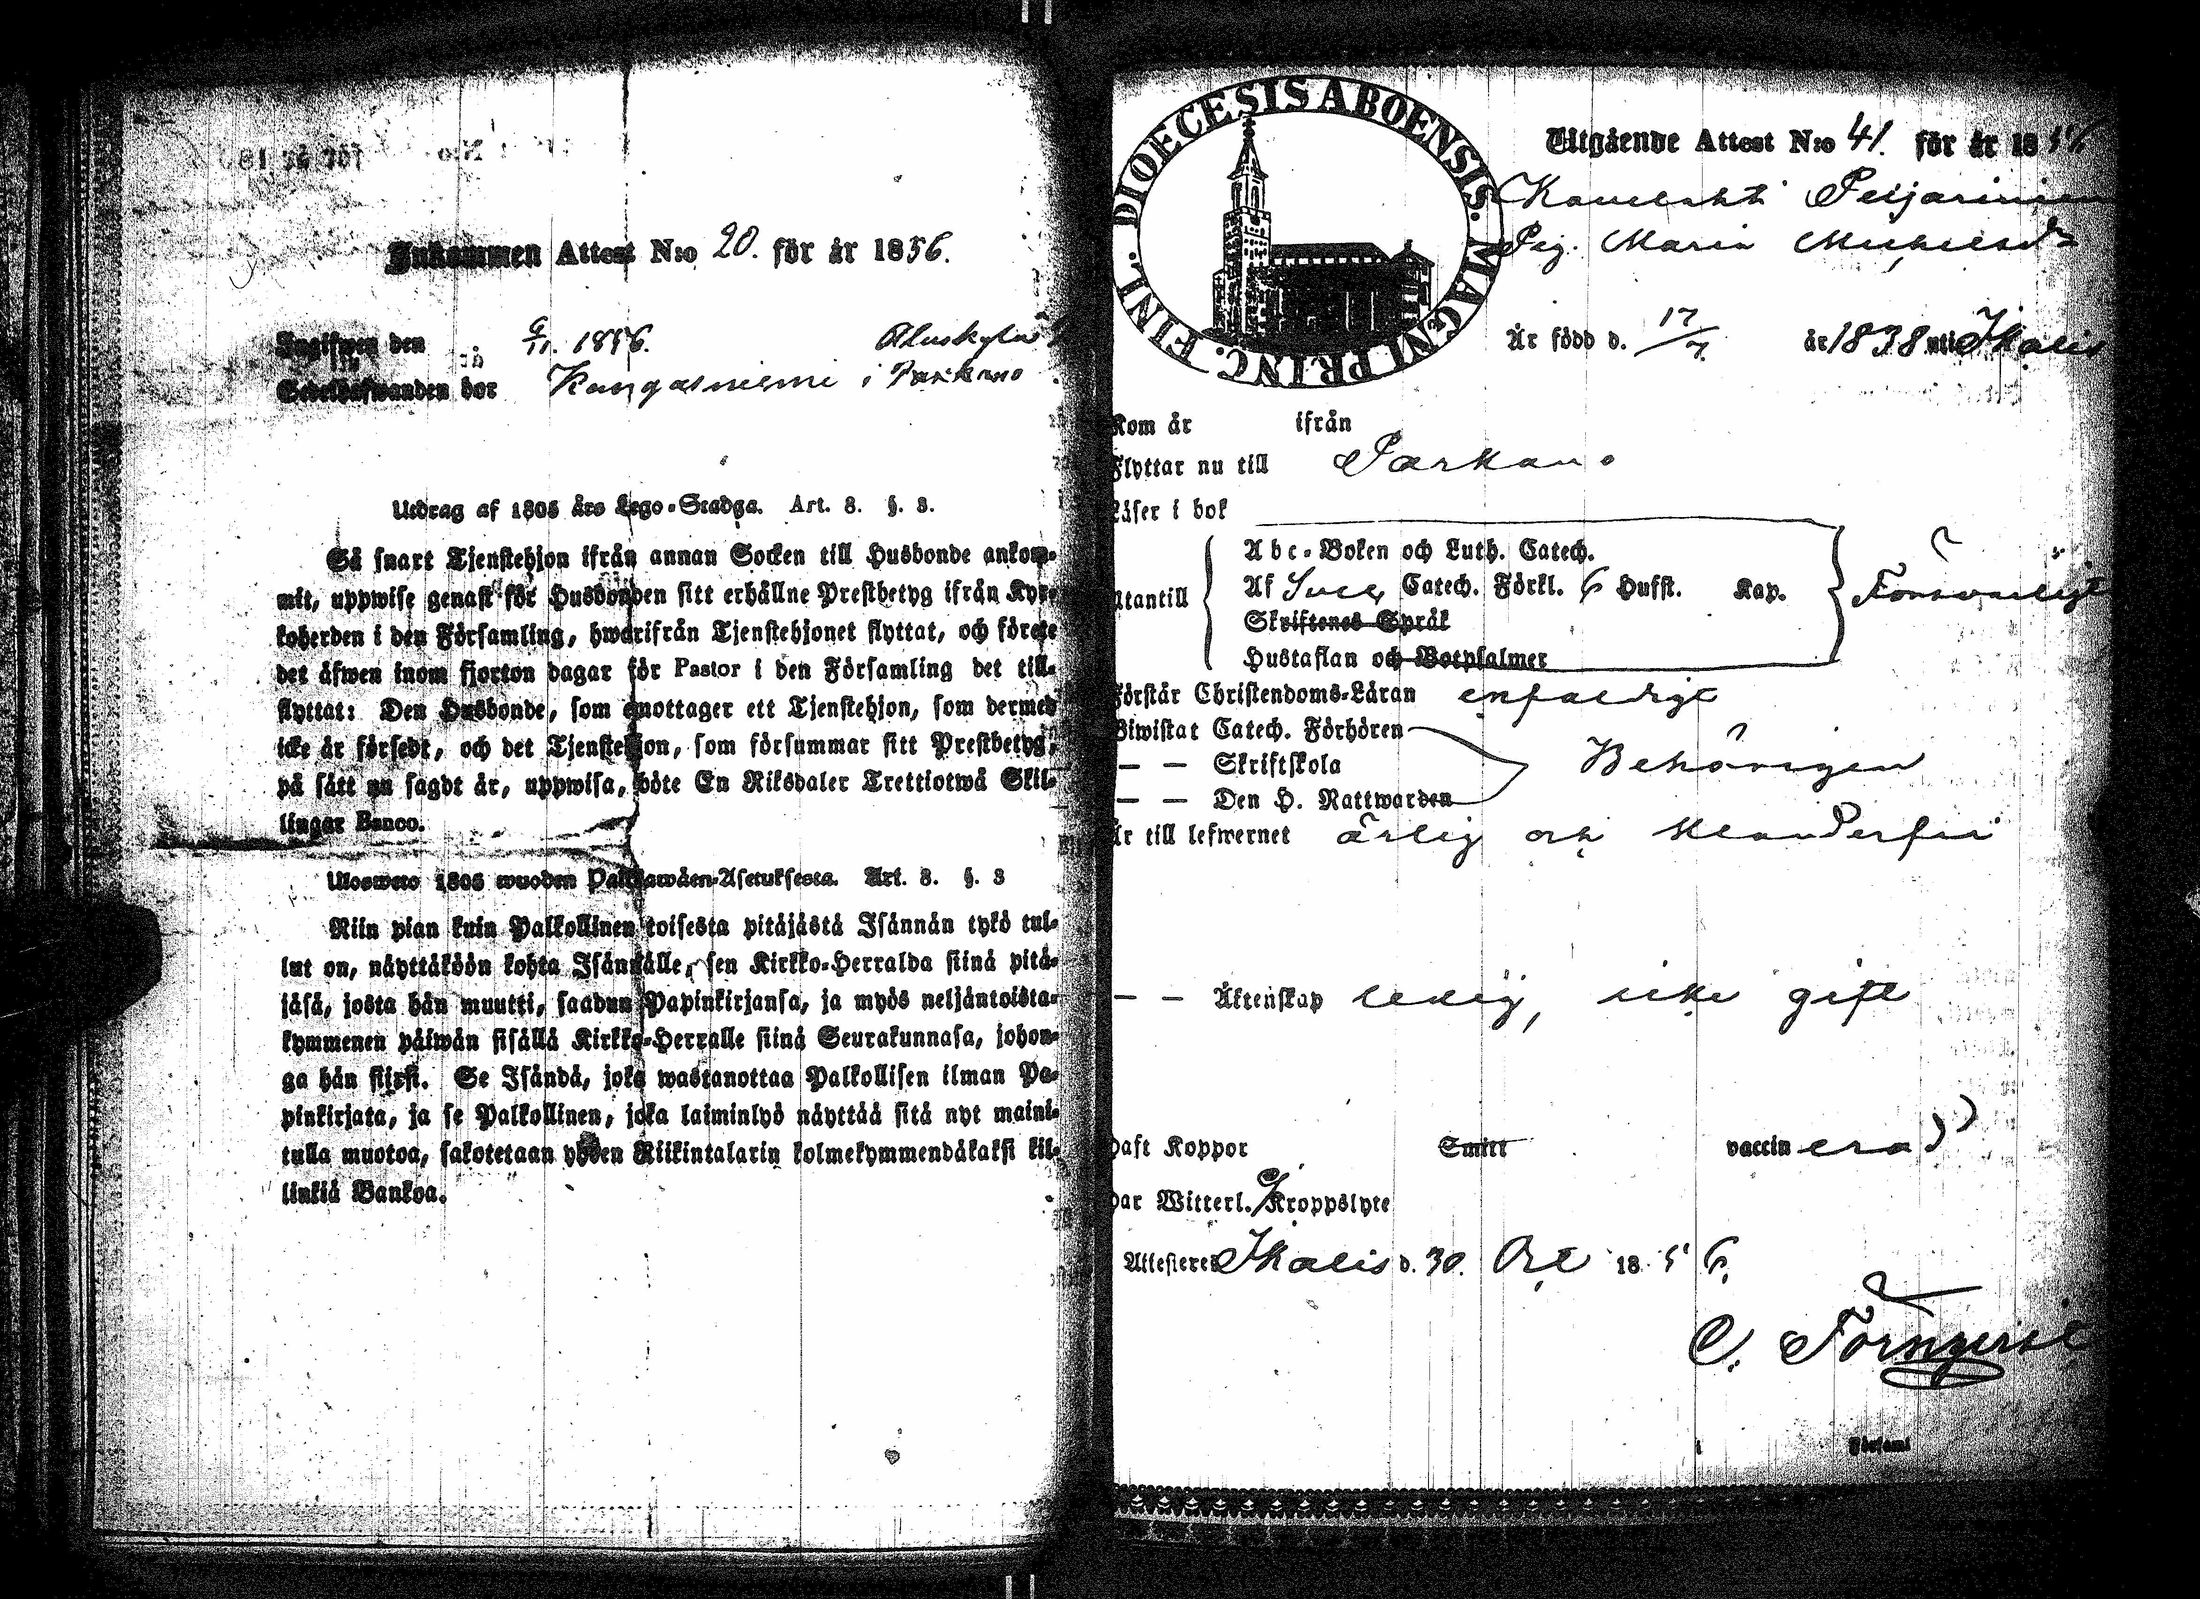 Inkommen Attest N:o 20. för år 1856.
Ingifwen den 6/11. 1856.
Sedelhafwanden bor Kangasniemi i Parkano
Utdrag af 1805 års Lego-Stadga. Art. 8. §. 3.
Så snart Tjenstehjon ifrån annan Socken till Husbonde ankom-
mit, uppwise genast för Husbonden sitt erhållne Prestbetyg ifrån Kyr-
koherden i den Församling, hwarifrån Tjenstehjonet flyttat, och förete
det äfwen inom fjorton dagar för Pastor i den Församling det till-
flyttat: Den Husbonde, som emottager ett Tjenstehjon, som dermed
icke är försedt, och det Tjenstehjon, som försummar sitt Prestbetyg,
på sätt nu sagdt är, uppwisa, böte En Riksdaler Trettiotwå Skil-
lingar Banco.
Ulosweto 1805 wuoden Palkkawäen-Asetuksesta. Art. 8. §. 3
Niin pian kuin Palkollinen toisesta pitäjästä Isännän tykö tul-
lut on, näyttäköön kohta Isännälle, sen Kirkko-Herralda siinä pitä-
jäsä, josta hän muutti, saadun Papinkirjansa, ja myös neljäntoista-
kymmenen päiwän sisällä Kirkko-Herralle siinä Seurakunnasa, johon-
ga hän siirsi. Se Isändä, joka wastanottaa Palkollisen ilman Pa-
pinkirjata, ja se Palkollinen, joka laiminlyö näyttää sitä nyt maini-
tulla muotoa, sakotetaan yhden Riikintalarin kolmekymmendäkaksi kil-
linkiä Bankoa.
DIOECESIS ABOENSIS. MAGNI PRINC. FINL.
Utgående Attest N:o 41. för år 1856
Pig. Maria Michelsdr
Är född d. 17/7 år 1838 uti Ikalis
Kom år ifrån
Flyttar nu till Parkano
Läser i bok
Utantill
Abc-Boken och Luth. Catech.
Af Sveb. Catech. Förkl. 6 Hufst. Kap.
Försvarligt
Skriftenes Språk
Hustaflan och Botpsalmer
Förstår Christendoms-Läran enfaldigt
Biwistat Catech. Förhören
— — Skriftskola Behörigen
— — Den H. Nattwarden
Är till lefwernet ärlig och klanderfri
— — Äktenskap ledig, icke gift
Haft Koppor Smitt vaccinerad
Har Witterl. Kroppslyte
Attesteres Ikalis d. 30. Oct 1856.